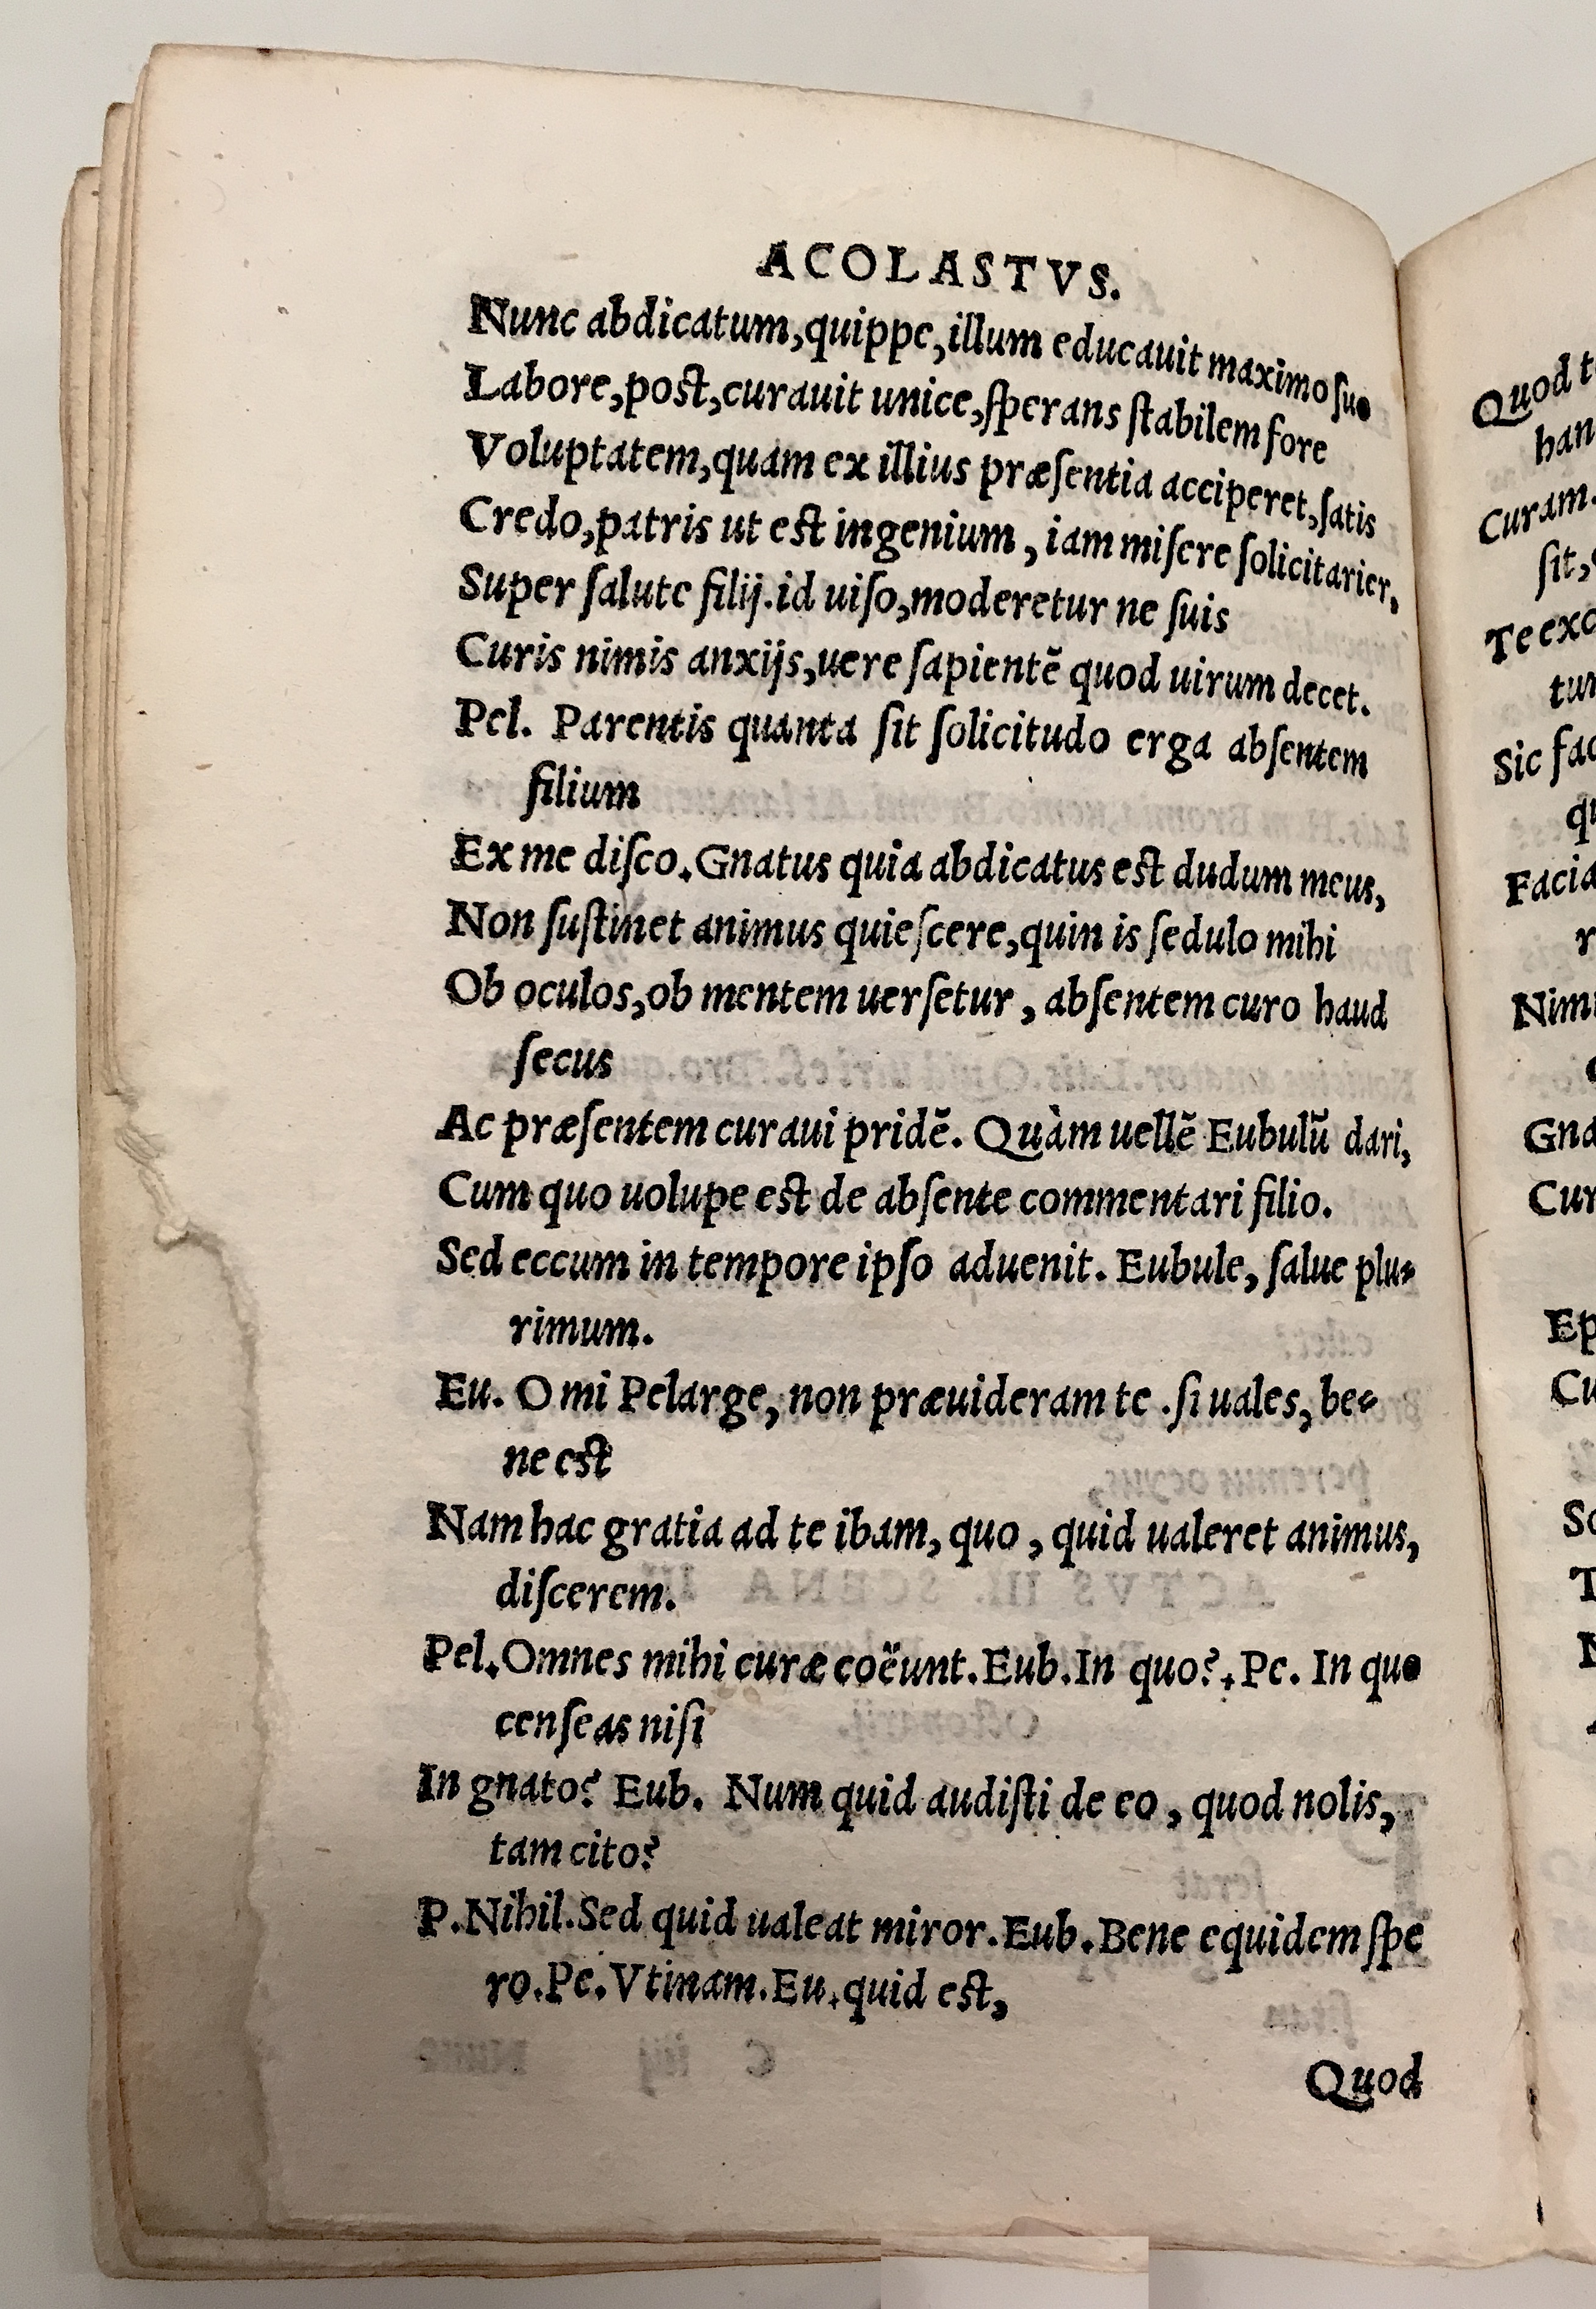 ACOLASTVS.
Nunc abdicatum,quippe,illum educauit maximo ſuo
Labore,poſt,curauit unice,ſperans ſtabilem fore
Voluptatem,quam ex illius præſentia acciperet,ſatis
Credo,patris ut eſt ingenium , iam miſere ſolicitarier,
Super ſalute filij.id uiſo,moderetur ne ſuis
Curis nimis anxijs,uere ſapientẽ quod uirum decet.
Pel. Parentis quanta ſit ſolicitudo erga abſentem
filium
Ex me diſco.Gnatus quia abdicatus eſt dudum meus,
Non ſuſtinet animus quieſcere,quin is ſedulo mihi
Ob oculos,ob mentem uerſetur , abſentem curo haud
ſecus
Ac præſentem curaui pridẽ. Quàm uellẽ Eubulũ dari,
Cum quo uolupe eſt de abſente commentari filio.
Sed eccum in tempore ipſo aduenit. Eubule, ſalue plu-
rimum.
Eu. O mi Pelarge, non præuideram te .ſi uales, be-
ne eſt
Nam hac gratia ad te ibam, quo , quid ualeret animus,
diſcerem.
Pel.Omnes mihi curæ coëunt.Eub.In quo?.Pe. In quo
cenſeas niſi
In gnato? Eub. Num quid audiſti de eo , quod nolis,
tam cito?
P.Nihil.Sed quid ualeat miror.Eub.Bene equidem ſpe
ro.Pe.Vtinam.Eu.quid eſt,
Quod
Quod
han
Curam.
ſit,
Te exc
tur
Sic fac
qu
Facia
r
Nim
Gna
Cur
Ep
Cu
So
T
N